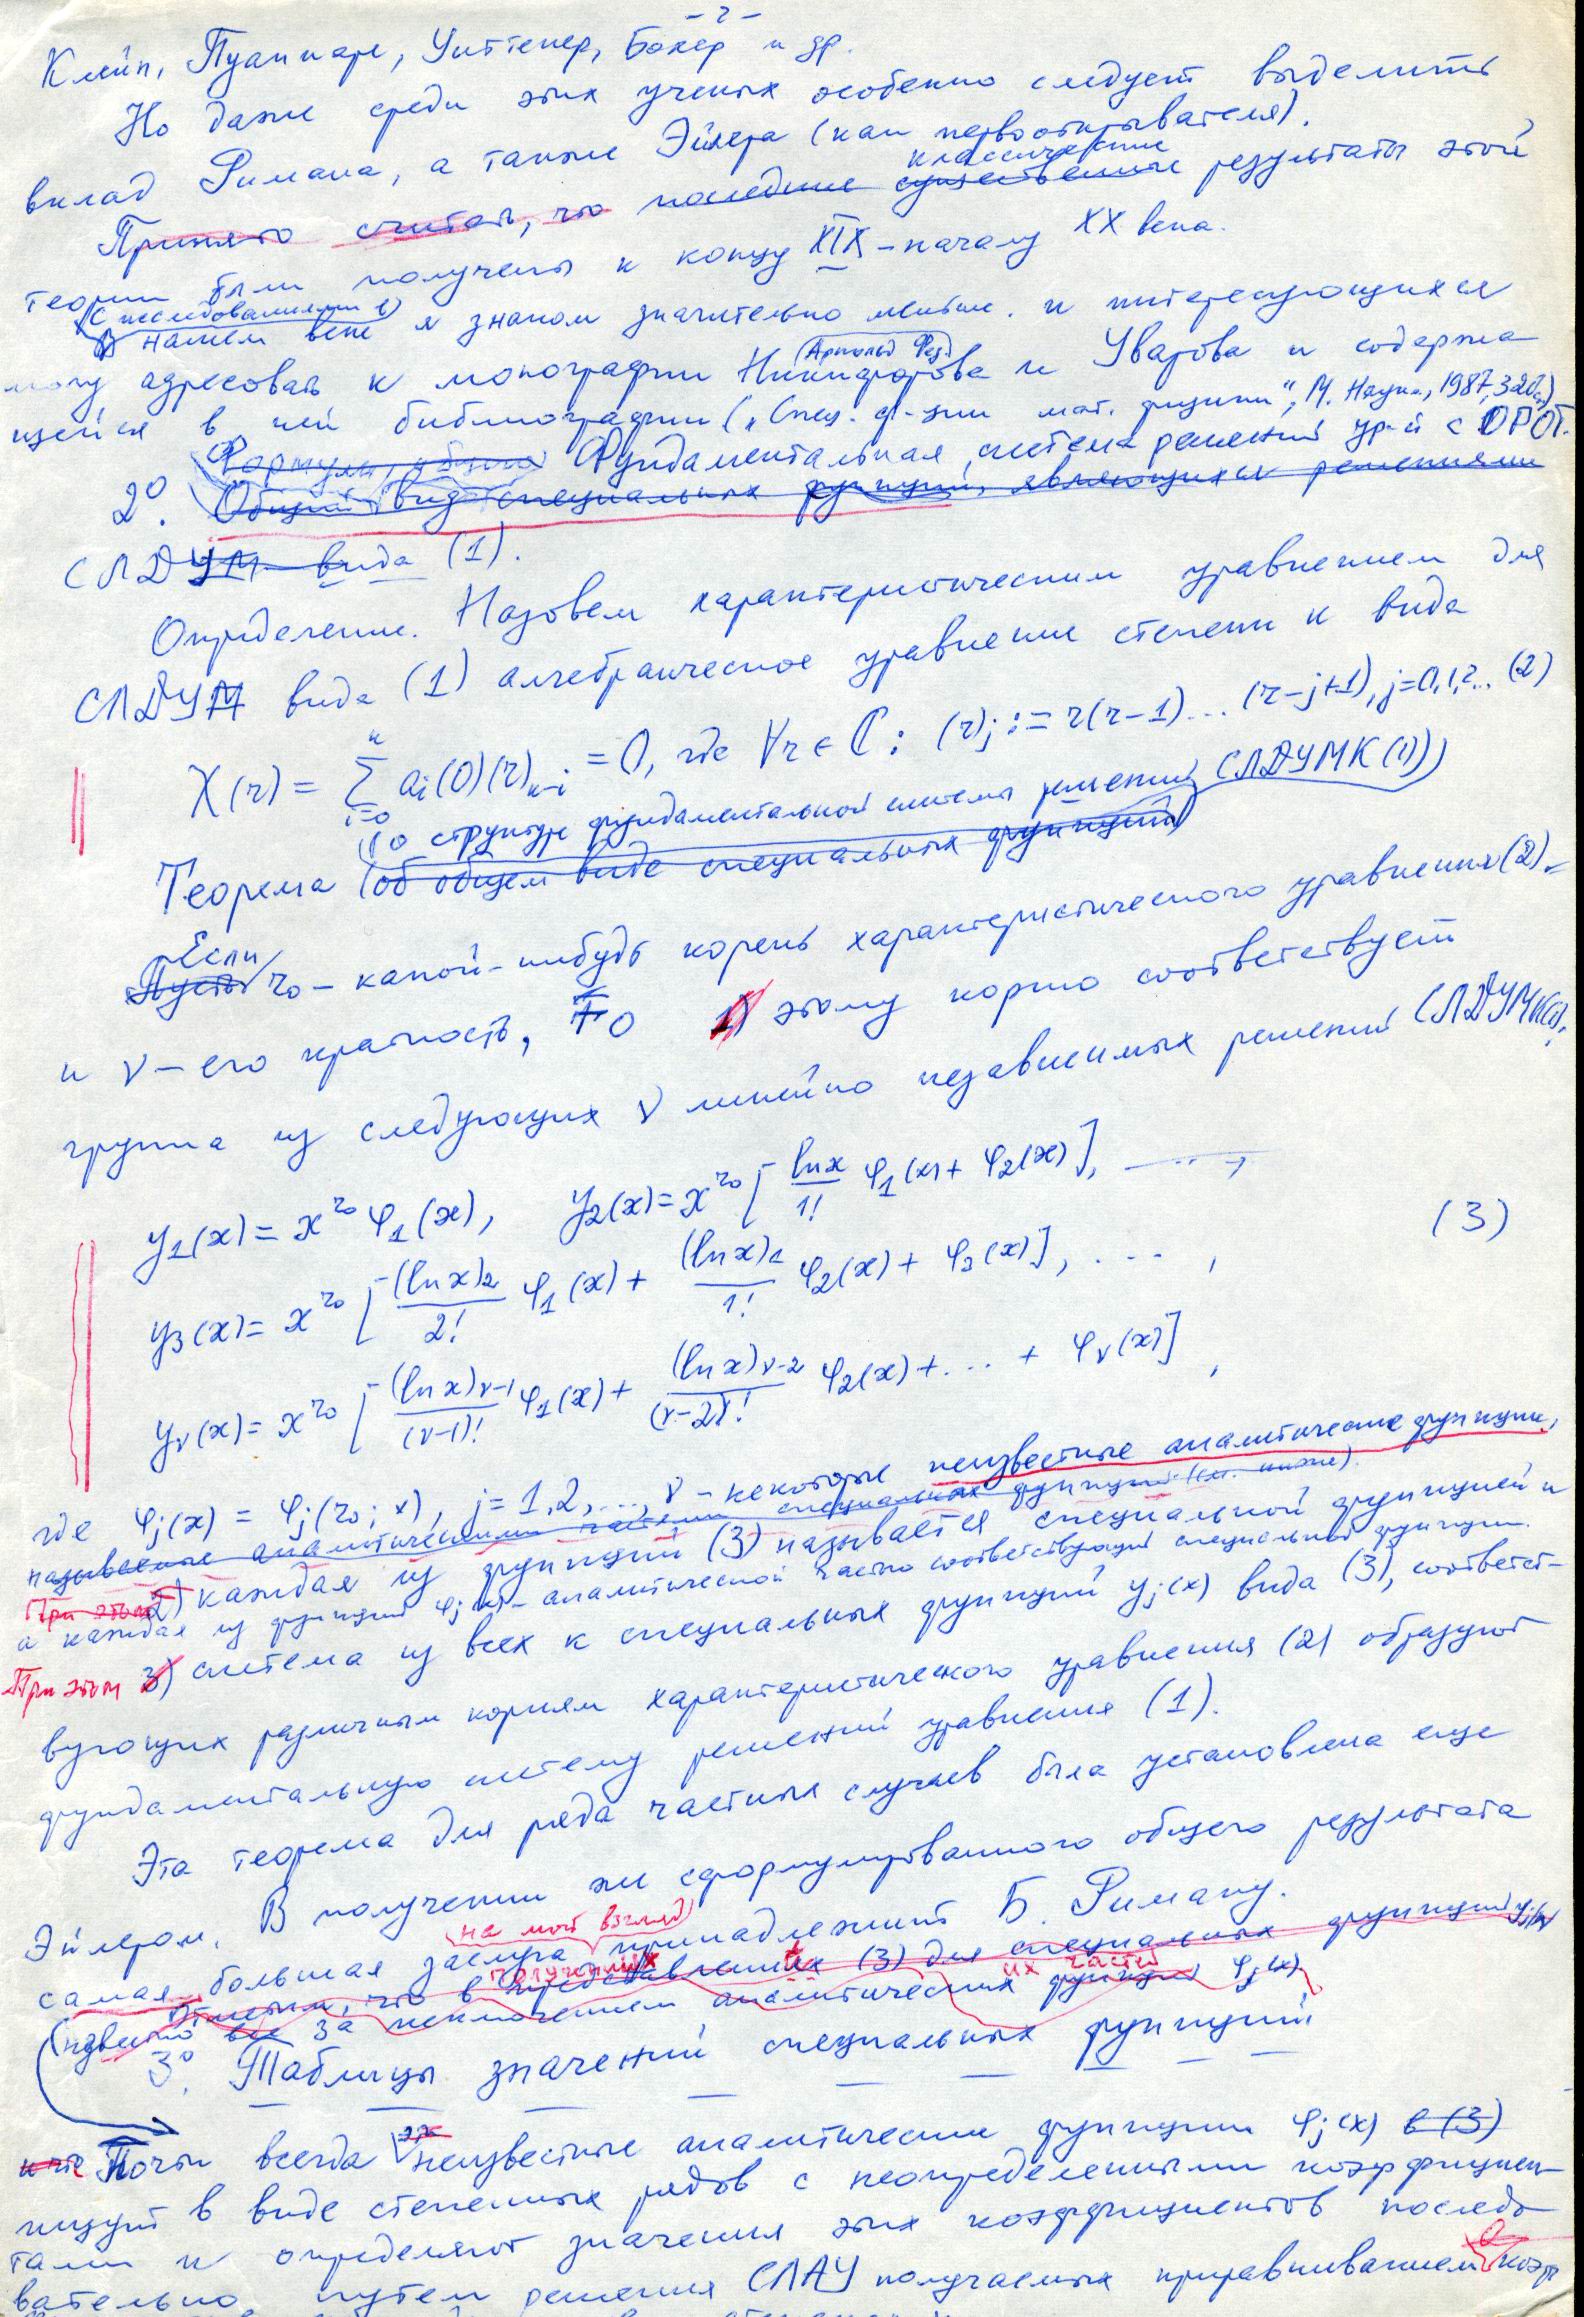 - 2 -
Клейн, Пуанкаре, Уиттекер, Бэкер и др.
Но даже среди этих ученых особенно следует выделить
вклад Римана, а также Эйлера (как первооткрывателя).
классические
Принято считать, что последние существенные результаты этой
теории были получены к концу XIX – началу XX века.
(с исследованиями в)
В нашем веке я знаком значительно меньше и интересующихся
(Арнольд Фед.)
могу адресовать к монографии Никифорова и Уварова и содержа
щейся в ней библиографии („Спец. ф-ции мат. физики“, М. Наука, 1987, 320с.)
Формулы общие Фундаментальная система решений ур-й с ОРОТ.
2°. Общий вид специальных функций, являющихся решениями
СЛДУМ вида (1).
Определение. Назовем характеристическим уравнением для
СЛДУМ вида (1) алгебраическое уравнение степени к вида
χ(r) = Σ_{i=0}^{к} a_i(0)(r)_{к-i} = 0, где ∀r ∈ ℂ: (r)_j := r(r-1)... (r-j+1), j=0,1,2... (2)
(о структуре фундаментальной системы решений СЛДУМК(1))
Теорема (об общем виде специальных функций)
Если
Пусть r₀ – какой-нибудь корень характеристического уравнения (2)
и ν – его кратность, то 1) этому корню соответствует
группа из следующих ν линейно независимых решений СЛДУМК(1):
y₁(x) = x^{r₀} φ₁(x), y₂(x) = x^{r₀} [ lnx/1! φ₁(x) + φ₂(x) ], ... ,
(3)
y₃(x) = x^{r₀} [ (lnx)₂/2! φ₁(x) + (lnx)₁/1! φ₂(x) + φ₃(x) ], ... ,
y_ν(x) = x^{r₀} [ (lnx)_{ν-1}/(ν-1)! φ₁(x) + (lnx)_{ν-2}/(ν-2)! φ₂(x) + ... + φ_ν(x) ],
где φ_j(x) = φ_j(r₀; x), j = 1,2,..., ν – некоторые неизвестные аналитические функции,
называемые аналитическими частями специальных функций (см. ниже).
При этом 2) каждая из функций (3) называется специальной функцией и
а каждая из функций φ_j(x) – аналитической частью соответствующей специальной функции.
При этом 3) система из всех к специальных функций y_j(x) вида (3), соответст-
вующих различным корням характеристического уравнения (2) образуют
фундаментальную систему решений уравнения (1).
Эта теорема для ряда частных случаев была установлена еще
Эйлером. В получении же сформулированного общего результата
на мой взгляд
самая большая заслуга принадлежит Б. Риману.
полученных
Отметим, что в представлениях (3) для специальных функций y_j(x)
их частей
известно все за исключением аналитических функций φ_j(x)
3°. Таблицы значений специальных функций
Почти всегда эти неизвестные аналитические функции φ_j(x) в (3)
ищут в виде степенных рядов с неопределенными коэффициен-
тами и определяют значения этих коэффициентов последо
вательно путем решения СЛАУ получаемых приравниванием коэф